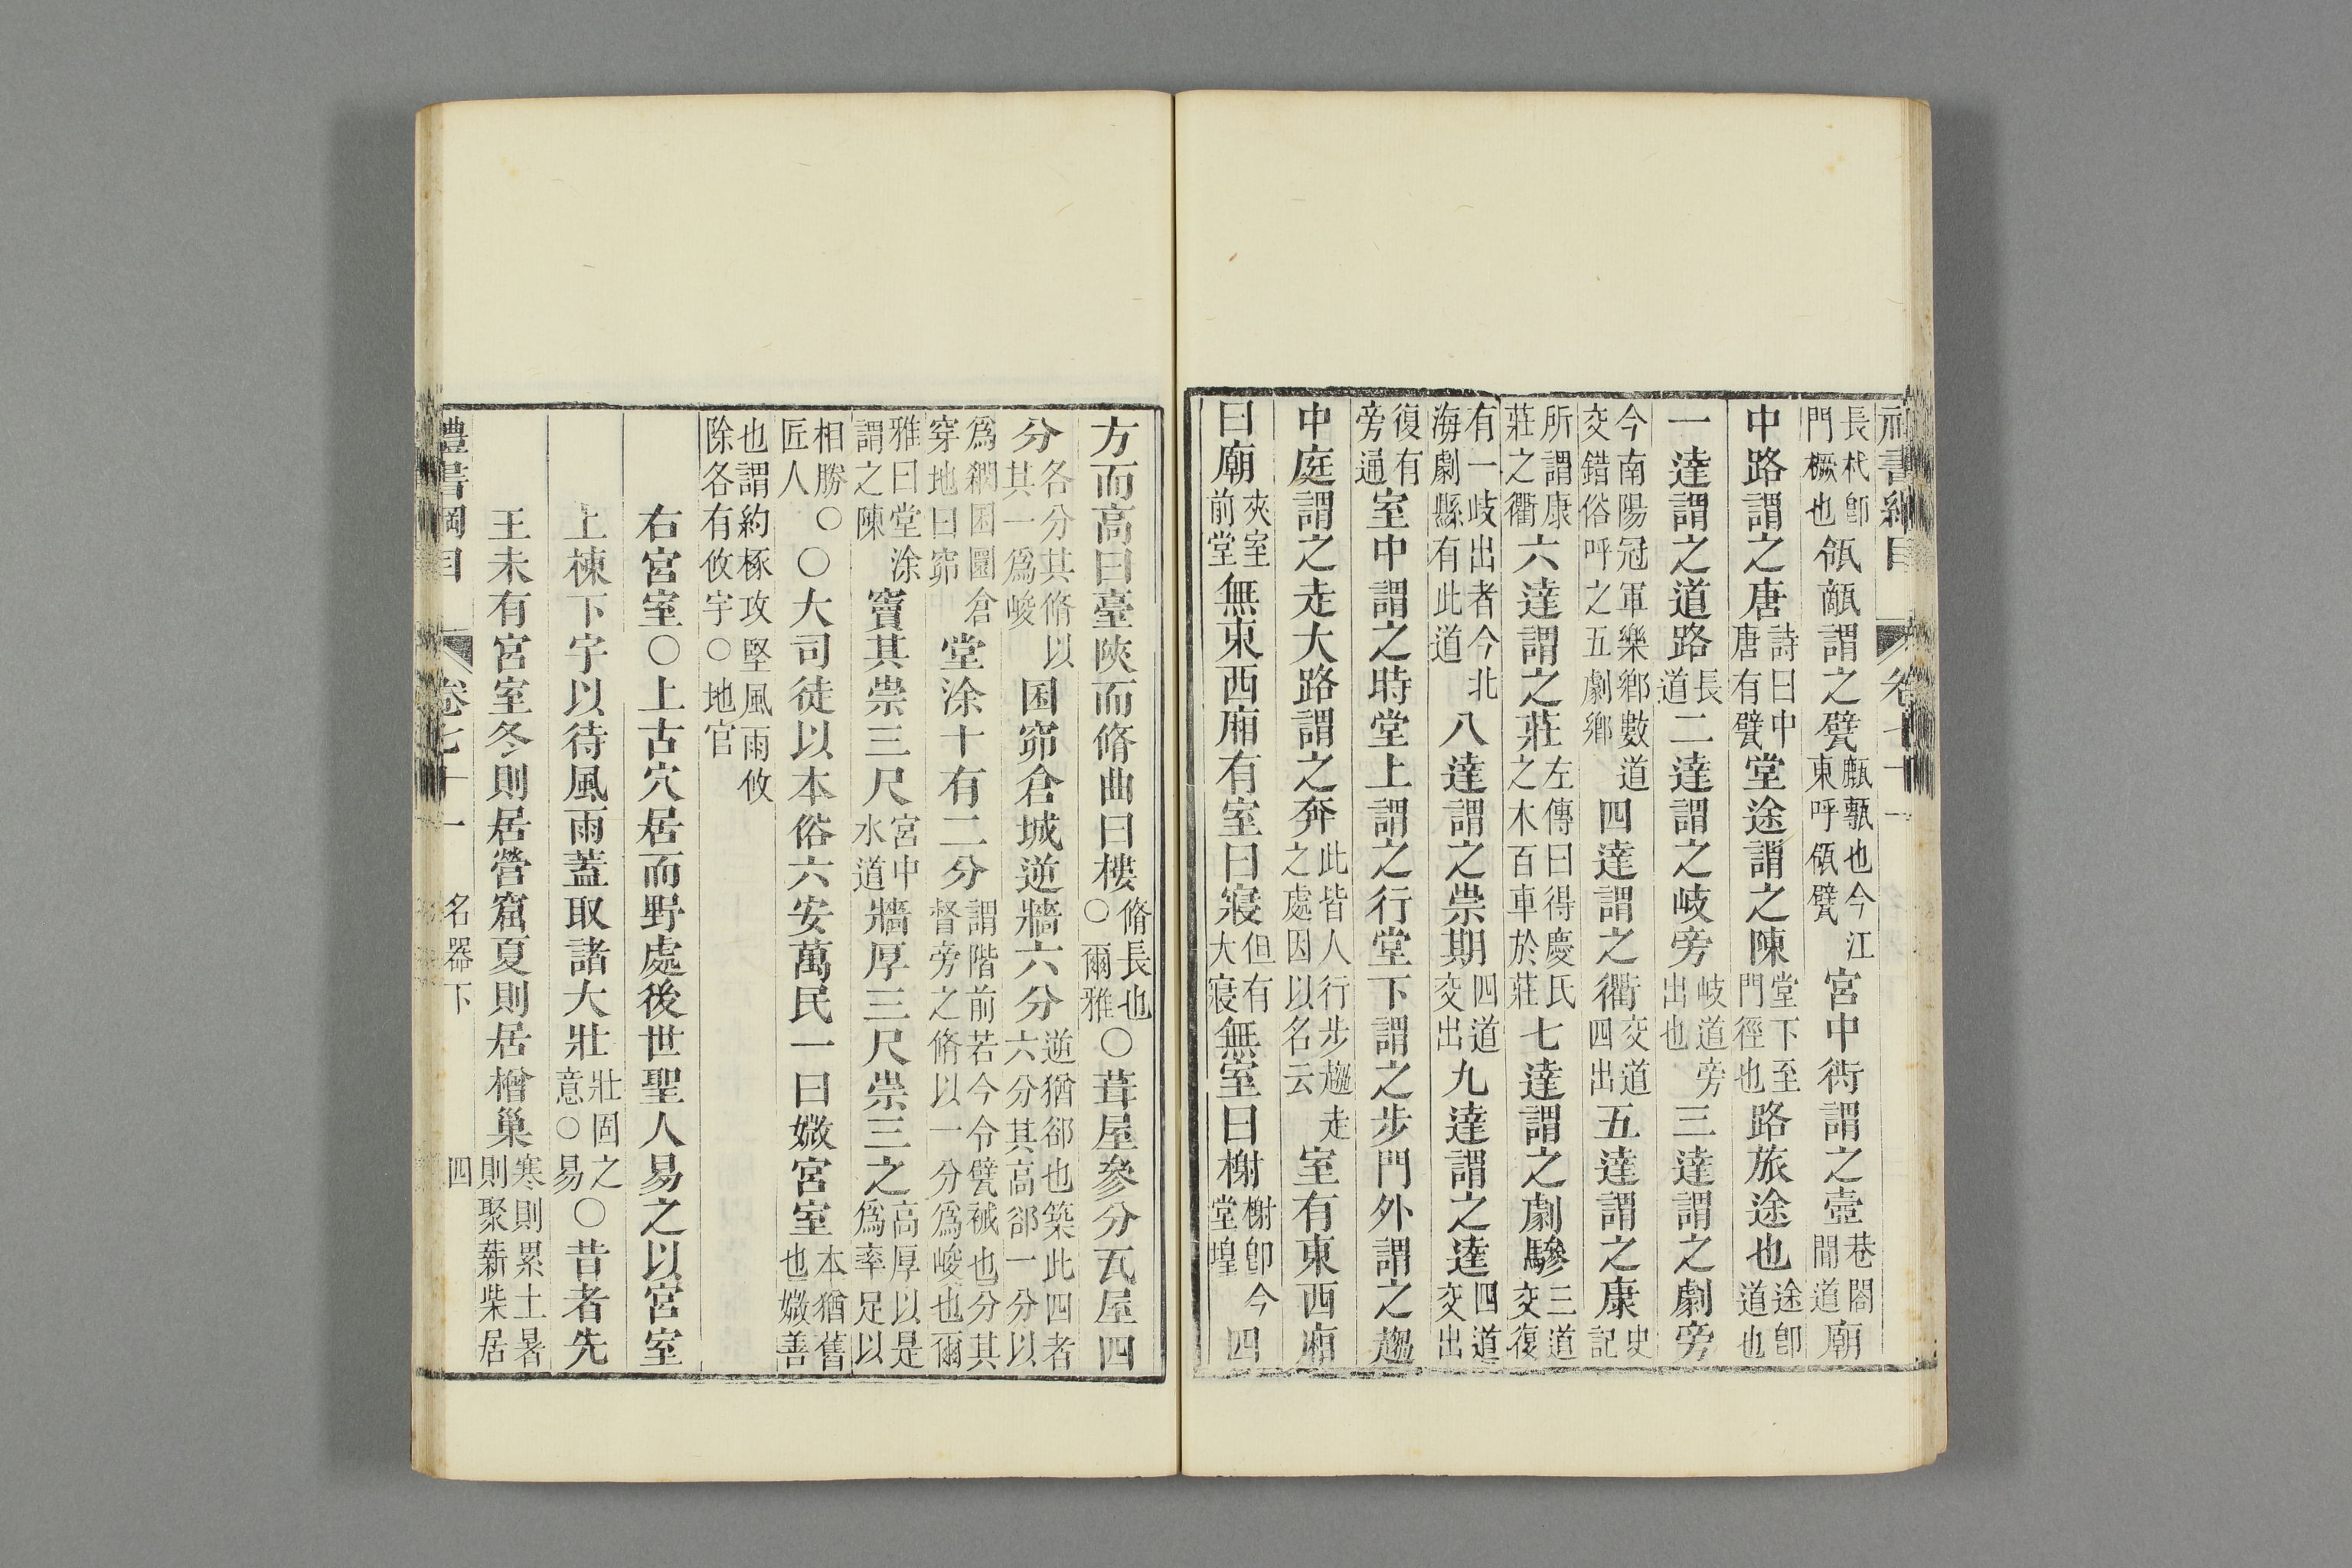 禮書綱目 卷七十一
長杙卽門橛也瓴甋謂之甓㼾甎也今江東呼瓴甓宮中衖謂之壼巷閤間道廟
中路謂之唐詩曰中唐有甓堂途謂之陳堂下至門徑也路旅途也途卽道也
一達謂之道路長道二達謂之岐旁岐道旁出也三達謂之劇旁
今南陽冠軍樂鄉數道交錯俗呼之五劇鄉四達謂之衢交道四出五達謂之康史記
所謂康莊之衢六達謂之莊左傳曰得慶氏之木百車於莊七達謂之劇驂三道交復
有一岐出者今北海劇縣有此道八達謂之崇期四道交出九達謂之逵四道交出
復有旁通室中謂之時堂上謂之行堂下謂之步門外謂之趨
中庭謂之走大路謂之奔此皆人行步趨走之處因以名云室有東西廂
曰廟夾室前堂無東西廂有室曰寢但有大寢無室曰榭榭卽今堂堭四
方而高曰臺陜而脩曲曰樓脩長也○爾雅○葺屋參分瓦屋四
分各分其脩以其一爲峻囷窌倉城逆牆六分逆猶郤也築此四者六分其高郤一分以
爲䋎囷圜倉穿地曰窌堂涂十有二分謂階前若今令甓裓也分其督旁之脩以一分爲峻也爾
雅曰堂涂謂之陳竇其崇三尺宮中水道牆厚三尺崇三之高厚以是爲率足以
相勝○匠人○大司徒以本俗六安萬民一曰媺宮室本猶舊也媺善
也謂約椓攻堅風雨攸除各有攸宇○地官
右宮室○上古穴居而野處後世聖人易之以宮室
上棟下宇以待風雨蓋取諸大壯壯固之意○易○昔者先
王未有宮室冬則居營窟夏則居橧巢寒則累土暑則聚薪柴居
禮書綱目 卷七十一 名器下 四